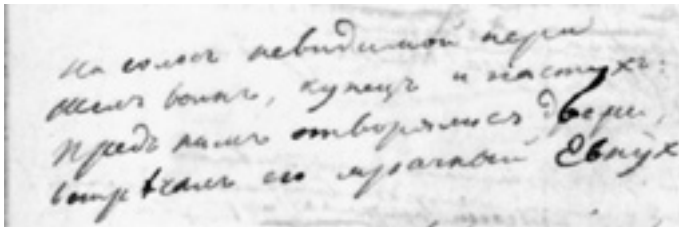 На голосъ невидимой пери
Шелъ воинъ, купецъ и пастухъ:
Предъ нимъ отворялися двери,
Встрѣчалъ его мрачный Евнух